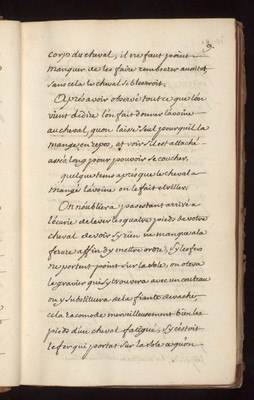 9.
corps du cheval, il ne faut point
manquer de les faire rembourer aussitot
sans cela le cheval se blesseroit.
Après avoir observé tout ce que l'on
vient de dire l'on fait donner l'avoine
au cheval, qu'on laisse seul pour qu'il la
mange en repos, et voir s'il est attaché
assés long pour pouvoir se coucher,
quelque tems après que le cheval a
mangé l'avoine on le fait
On n'oubliera pas estant arrivé a
l'écurie de lever les quatre pieds de votre
cheval de voir s'y rien ne manque a la
ferure affin d'y mettre ordre, s'y les fers
ne portent point sur la sole, on otera
le gravier qui s'y trouvera avec un couteau
on y substituera de la fiante de vache,
cela racomode merveilleusement bien les
pieds d'un cheval fatigué, s'y cestoit
le fer qui portat sur la sole et qu'on